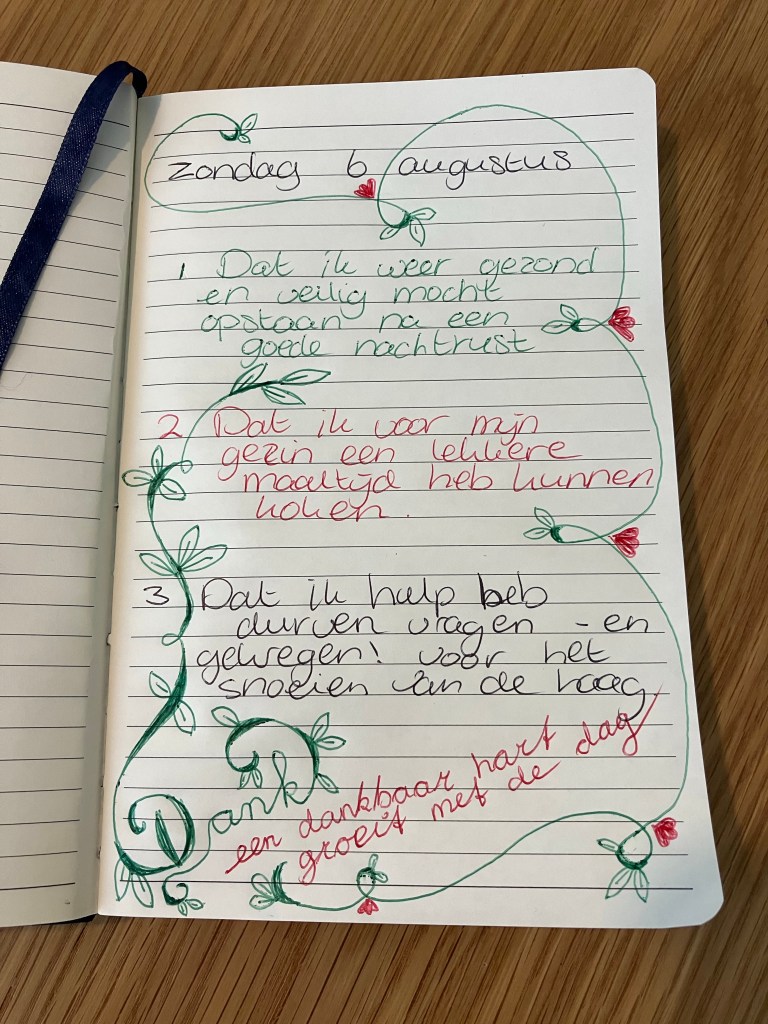 zondag 6 augustus
1 Dat ik weer gezond
en veilig mocht
opstaan na een
goede nachtrust
2 Dat ik voor mijn
gezin een lekkere
maaltijd heb kunnen
koken.
3 Dat ik hulp heb
durven vragen - en
gekregen! voor het
snoeien van de haag
Dank
een dankbaar hart
groeit met de dag